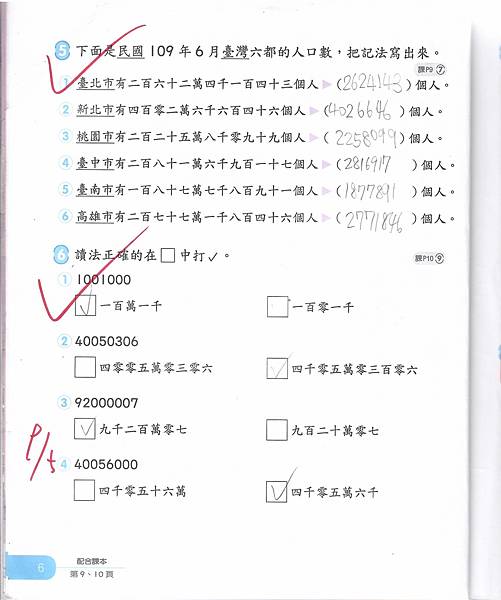 5 下面是民國109年6月臺灣六都的人口數，把記法寫出來。
課P9 7
1 臺北市有二百六十二萬四千一百四十三個人▶(2624143)個人。
2 新北市有四百零二萬六千六百四十六個人▶(4026646)個人。
3 桃園市有二百二十五萬八千零九十九個人▶(2258099)個人。
4 臺中市有二百八十一萬六千九百一十七個人▶(2816917)個人。
5 臺南市有一百八十七萬七千八百九十一個人▶(1877891)個人。
6 高雄市有二百七十七萬一千八百四十六個人▶(2771846)個人。
6 讀法正確的在□中打✓。
課P10 9
1 1001000
☑一百萬一千 □一百零一千
2 40050306
□四零零五萬零三零六 ☑四千零五萬零三百零六
3 92000007
☑九千二百萬零七 □九百二十萬零七
4 40056000
□四千零五十六萬 ☑四千零五萬六千
6
配合課本
第9、10頁